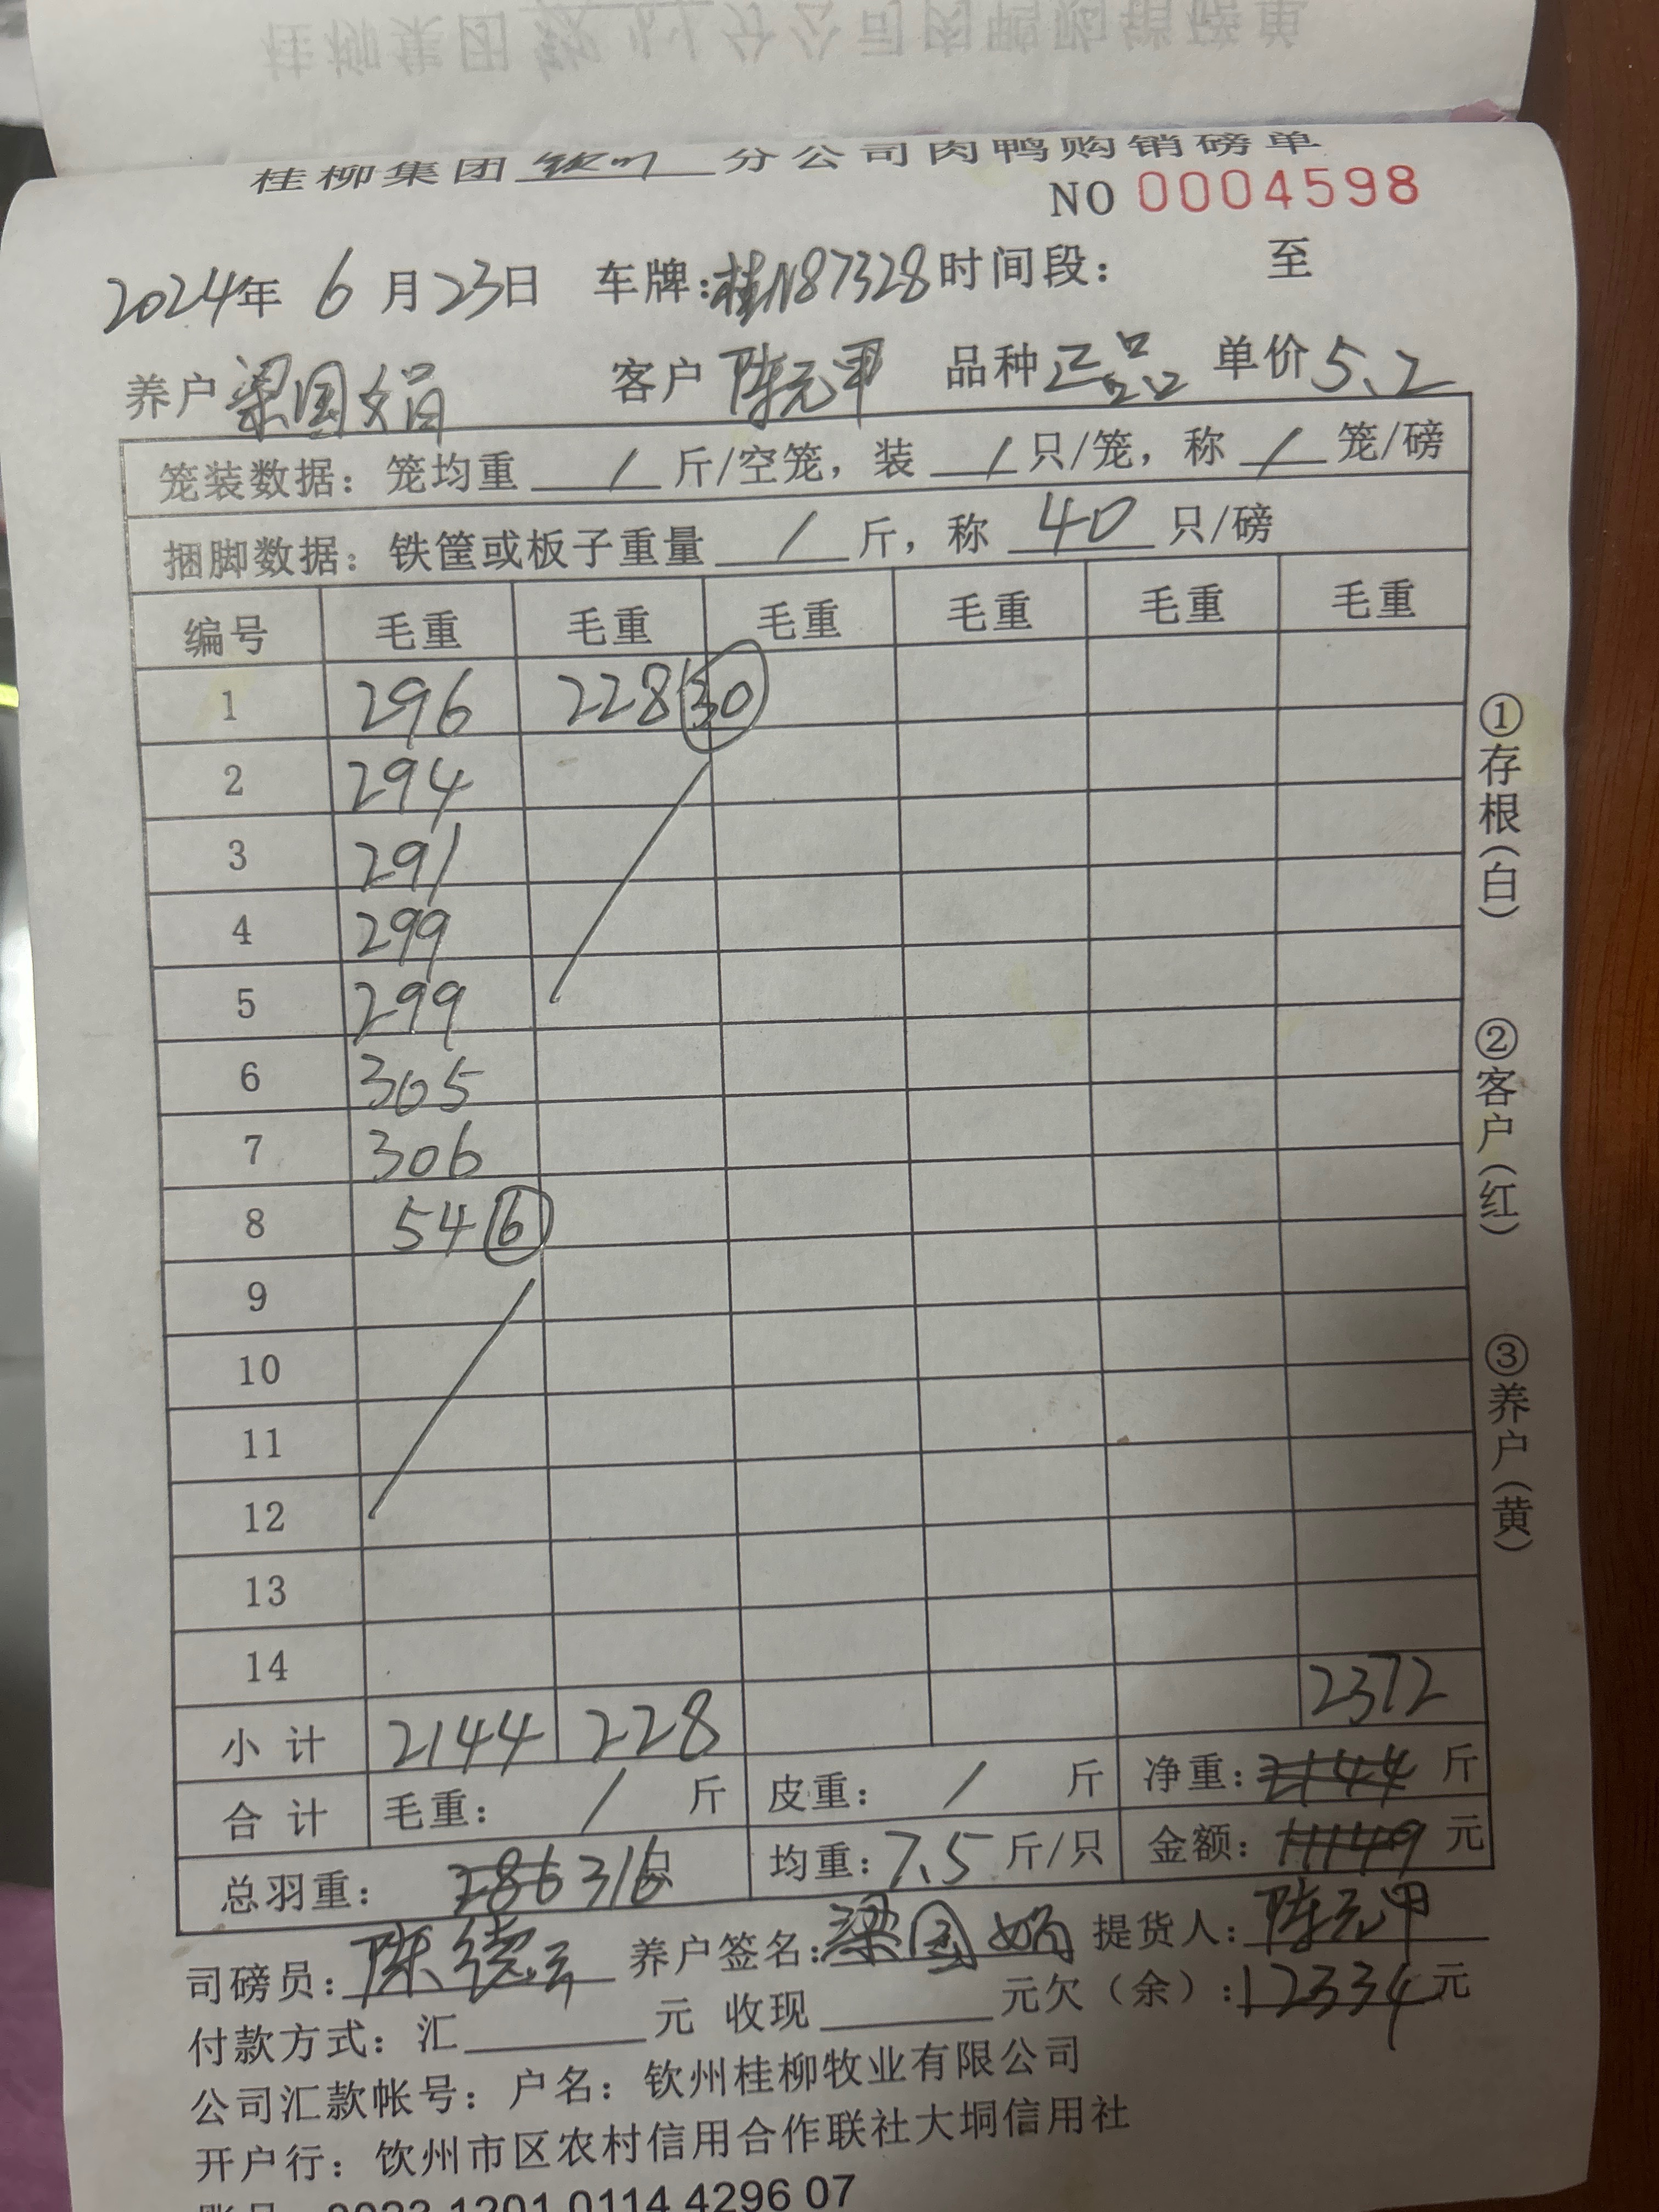 桂柳集团钦州分公司肉鸭购销磅单
NO 0004598
2024年 6月23日 车牌:桂N87328 时间段: 至
养户 梁国娟 客户 陈元甲 品种 正品 单价 5.2
笼装数据: 笼均重 / 斤/空笼, 装 / 只/笼, 称 / 笼/磅
捆脚数据: 铁筐或板子重量 / 斤, 称 40 只/磅
编号 毛重 毛重 毛重 毛重 毛重 毛重
1 296 228 30
2 294
3 291
4 299
5 299
6 305
7 306
8 54 6
9
10
11
12
13
14
小计 2144 228 2372
合计 毛重: / 斤 皮重: / 斤 净重: 2144 斤
总羽重: 286 316 只 均重: 7.5 斤/只 金额: 11149 元
司磅员: 陈德 养户签名: 梁国娟 提货人: 陈元甲
付款方式: 汇 元 收现 元欠(余): 12334元
公司汇款帐号: 户名: 钦州桂柳牧业有限公司
开户行: 钦州市区农村信用合作联社大垌信用社
1201 0114 4296 07
①存根(白)
②客户(红)
③养户(黄)